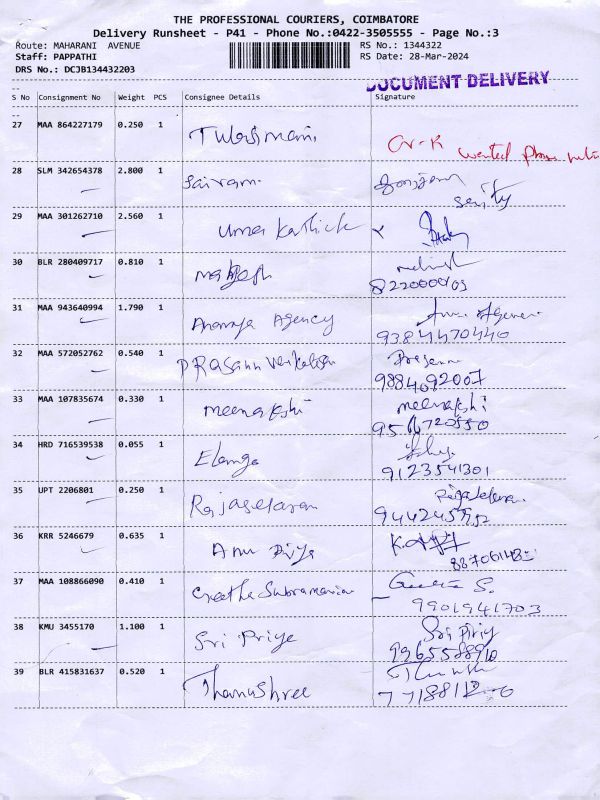 THE PROFESSIONAL COURIERS, COIMBATORE
Delivery Runsheet - P41 - Phone No.:0422-3505555 - Page No.:3
Route: MAHARANI AVENUE
RS No.: 1344322
Staff: PAPPATHI
RS Date: 28-Mar-2024
DRS No.: DCJB134432203
DOCUMENT DELIVERY
S No Consignment No Weight PCS Consignee Details Signature
27 MAA 864227179 0.250 1 Tulasimani wanted phone
28 SLM 342654378 2.800 1 Sairam
29 MAA 301262710 2.560 1 Uma Karthick
30 BLR 280409717 0.810 1
31 MAA 943640994 1.790 1 Ananya Agency
9384470440
32 MAA 572052762 0.540 1 Prasann
9884092007
33 MAA 107835674 0.330 1 meenakshi meenakshi
34 HRD 716539538 0.055 1 Elango
9123541301
35 UPT 2206801 0.250 1 Rajasekaran
36 KRR 5246679 0.635 1 Anu Priya
37 MAA 108866090 0.410 1 Geetha Subramanian Geetha S.
9901941703
38 KMU 3455170 1.100 1 Sri Priya Sri Priy
39 BLR 415831637 0.520 1 Thanushree